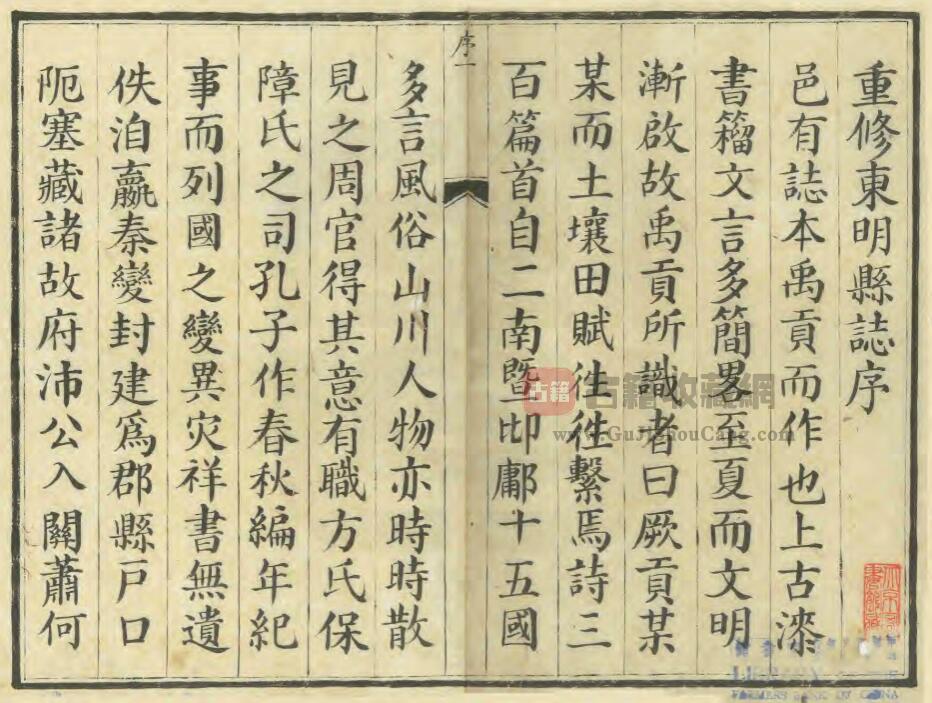 重修東明縣誌序
邑有誌本禹貢而作也上古漆
書籀文言多簡畧至夏而文明
漸啟故禹貢所識者曰厥貢某
某而土壤田賦徃徃繫焉詩三
百篇首自二南暨邶鄘十五國
序一
多言風俗山川人物亦時時散
見之周官得其意有職方氏保
障氏之司孔子作春秋編年紀
事而列國之變異灾祥書無遺
佚洎嬴秦變封建爲郡縣戸口
阨塞藏諸故府沛公入關蕭何
古籍
古籍收藏網
www.GuJiShouCang.com
LIBRARY
FARMERS BANK OF CHINA